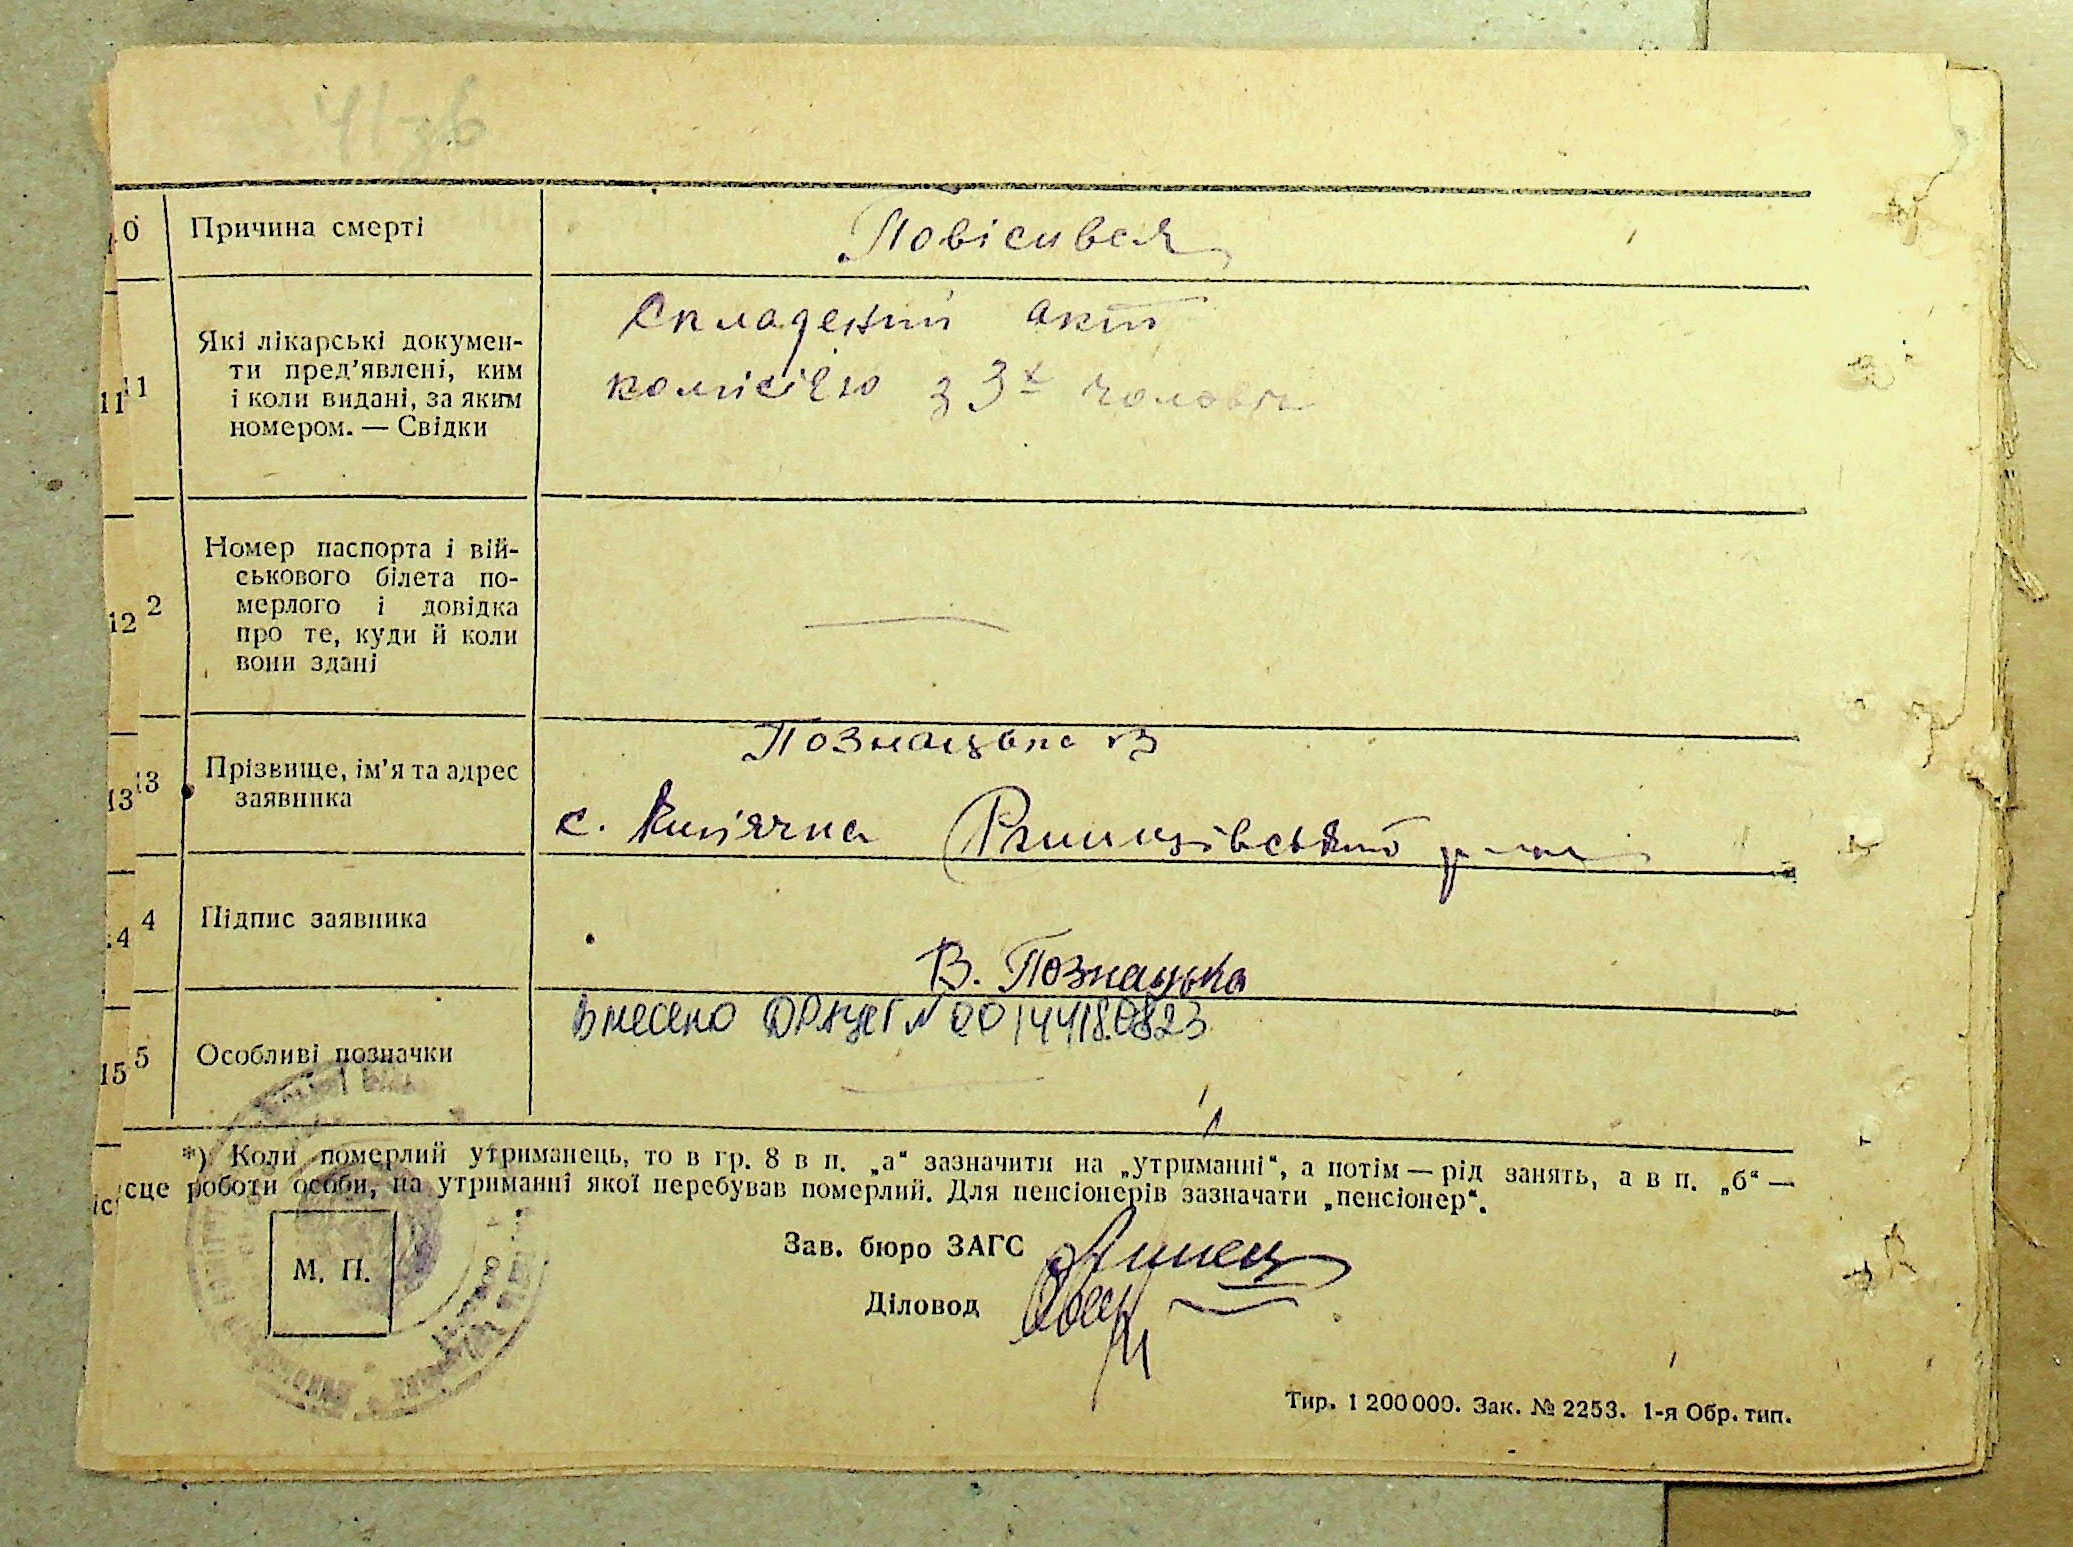 41зв
10 Причина смерті Повісився
11 Які лікарські докумен-
ти пред’явлені, ким
і коли видані, за яким
номером. — Свідки
Складений акт
комісією з 3х чоловік
12 Номер паспорта і вій-
ськового білета по-
мерлого і довідка
про те, куди й коли
вони здані
13 Прізвище, ім’я та адрес
заявника
Познацька В
с. Кип'ячка
14 Підпис заявника
В. Познацька
15 Особливі позначки
Внесено ДРАЦСГ N 00144180823
*) Коли померлий утриманець, то в гр. 8 в п. „а“ зазначити на „утриманні“, а потім — рід занять, а в п. „б“ —
місце роботи особи, на утриманні якої перебував померлий. Для пенсіонерів зазначати „пенсіонер“.
М. П.
Зав. бюро ЗАГС
Діловод
Тир. 1 200 000. Зак. № 2253. 1-я Обр. тип.